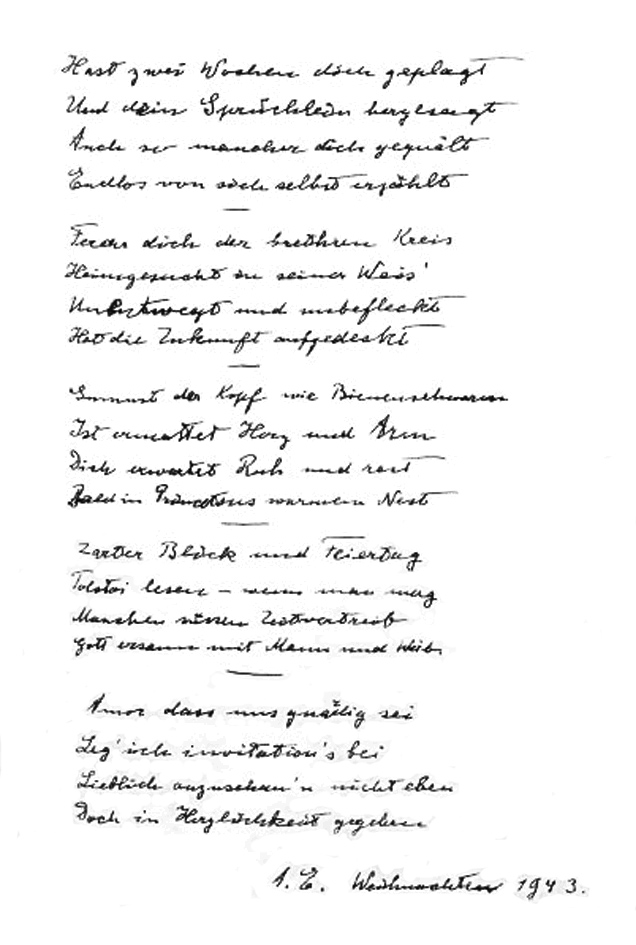 Hast zwei Wochen dich geplagt
Und dein Sprüchlein hergesagt
Auch so mancher dich gequält
Endlos von sich selbst erzählt
—
Feuer dich der brethren Kreis
Heimgesucht in seiner Weis'
und unbefleckt
Hat die Zukunft aufgedeckt
—
Summst der Kopf wie Bienenschwarm
Ist ermattet Herz und Arm
Dich erwartet Ruh und rast
Bald in Princetons warmem Nest
—
Zarter Blick und Feiertag
Tolstoi lesen – wenn man mag
Manchen süssen Zeitvertreib
Gott ersann mit Mann und Weib.
—
Amor dass uns gnädig sei
Leg' ich invitation's bei
Lieblich anzuschau'n nicht eben
Doch in Herzlichkeit gegeben
A. E. Weihnachten 1943.